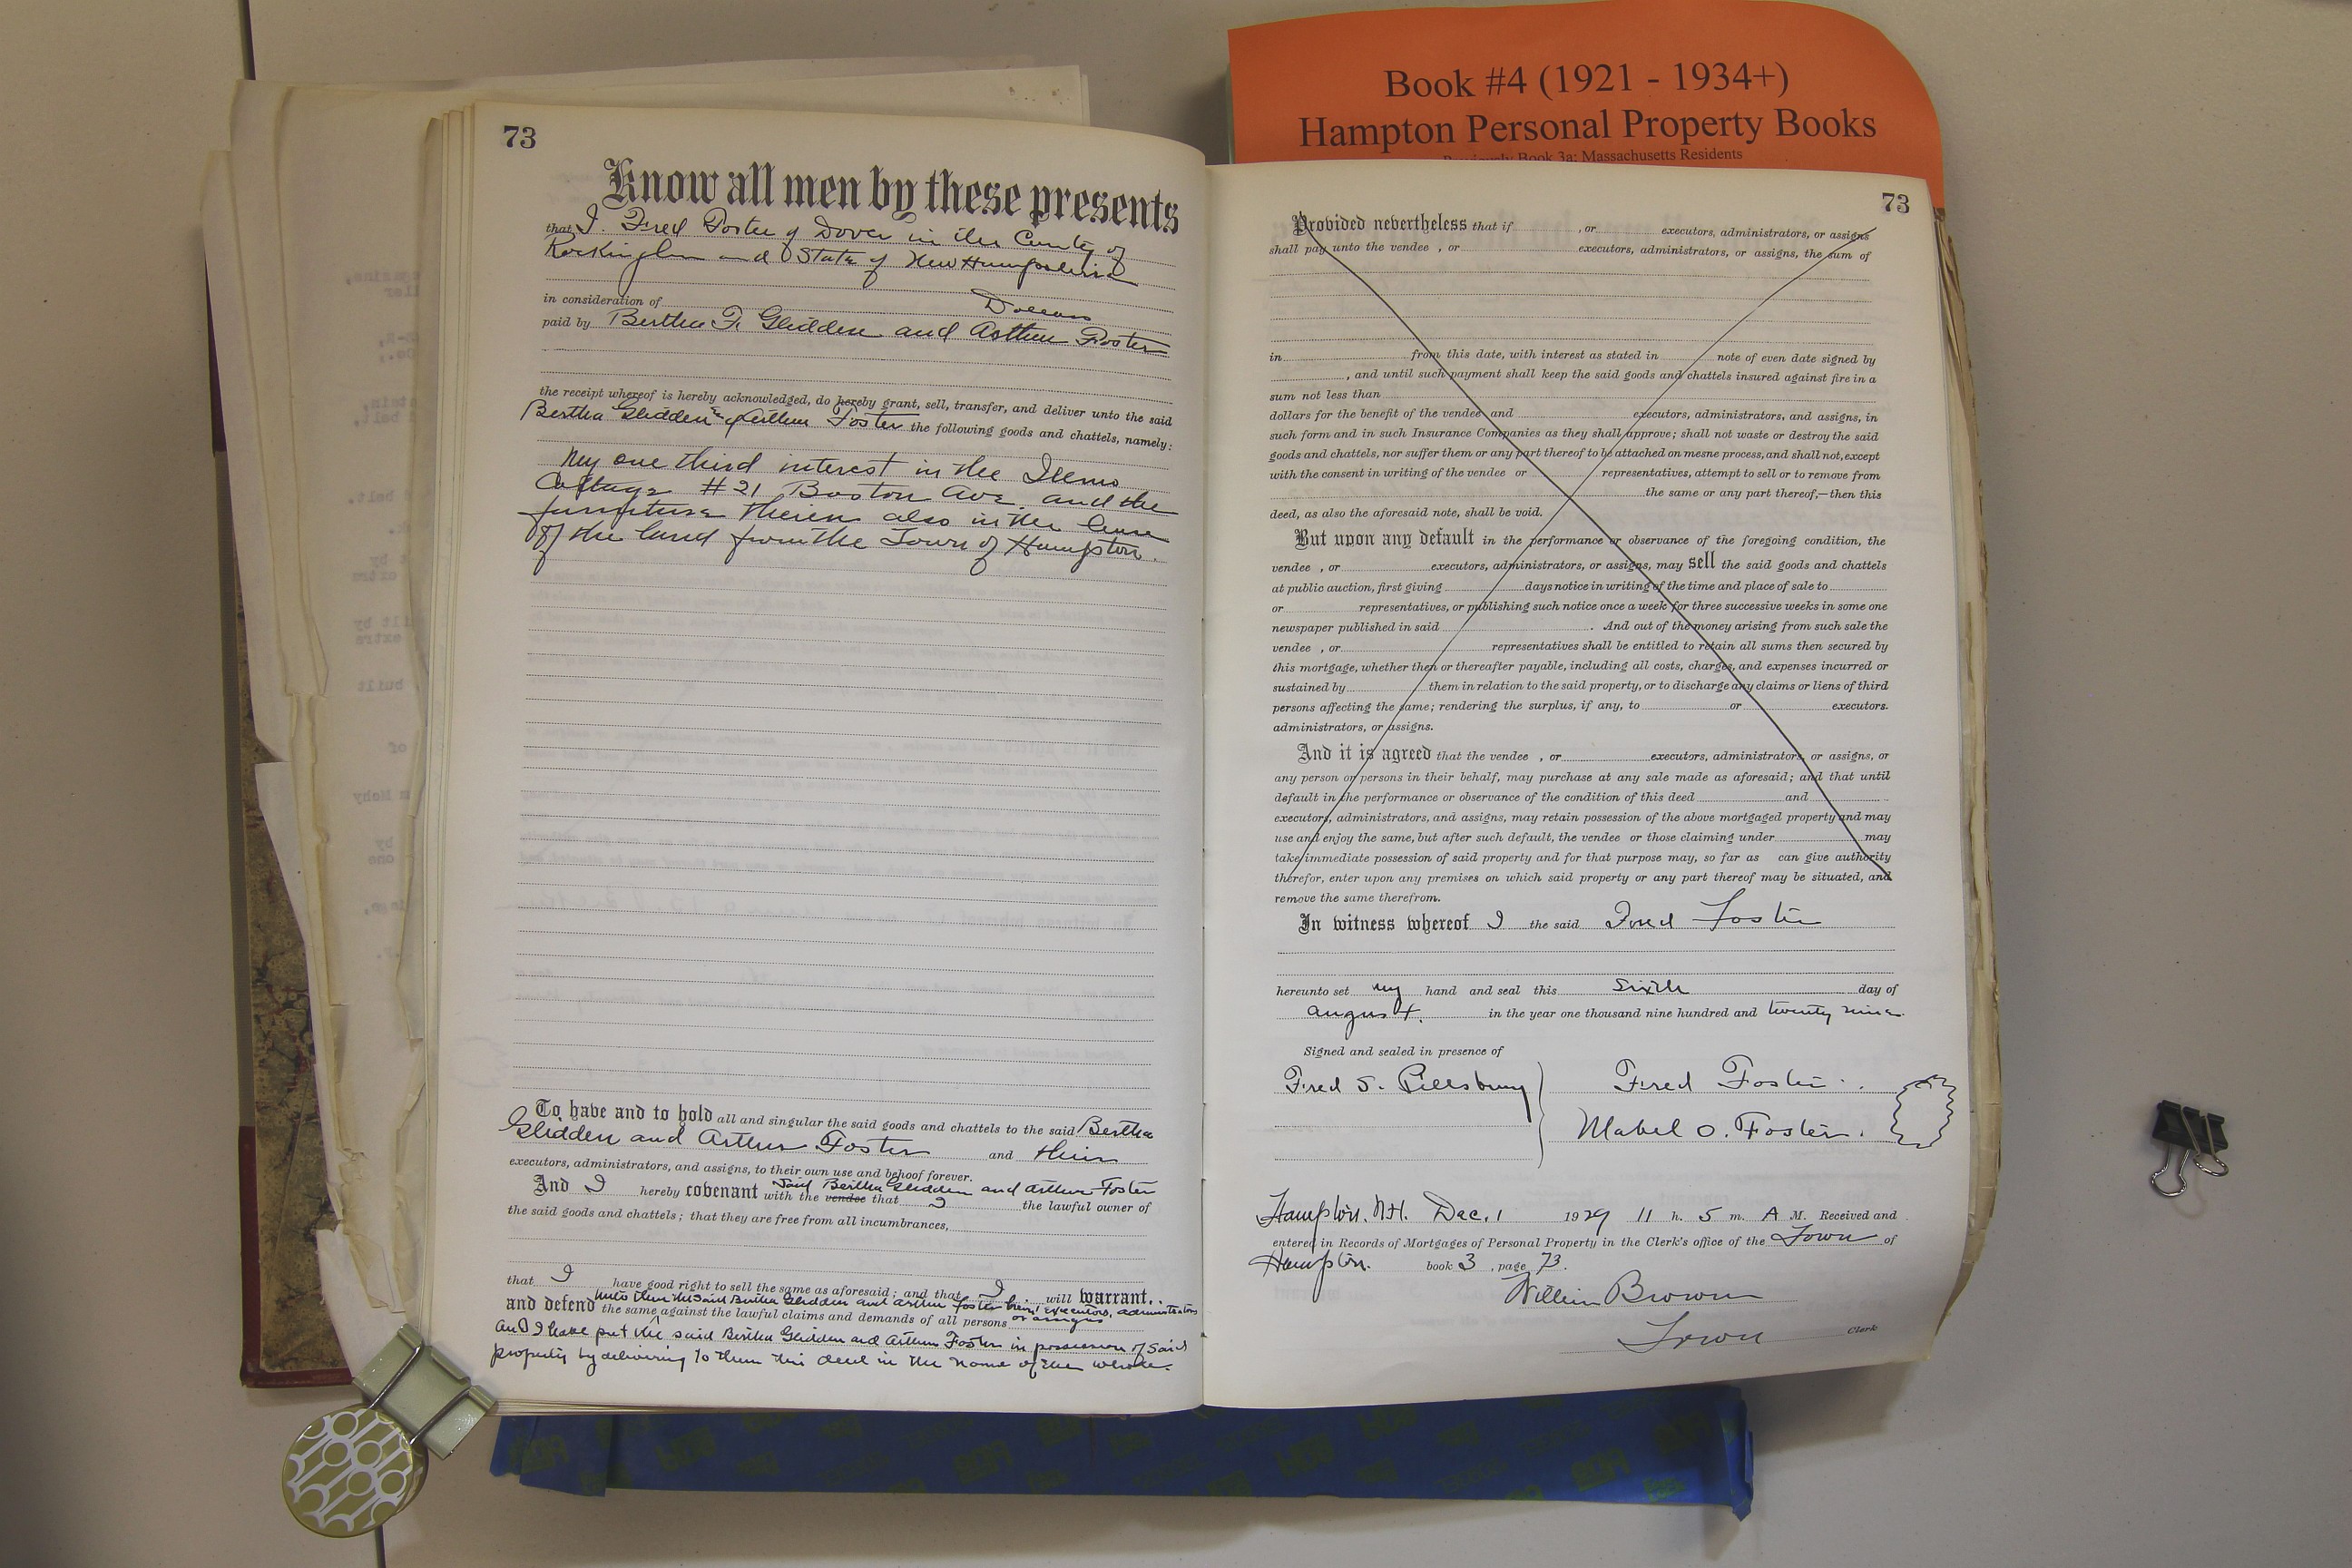 Book #4 (1921 - 1934+)
Hampton Personal Property Books
Previously Book 3a: Massachusetts Residents
73
Know all men by these presents
that I. Fred Foster of Dover in the County of
Rockingham and State of New Hampshire
in consideration of Dollars
paid by Bertha F. Glidden and Arthur Foster
the receipt whereof is hereby acknowledged, do hereby grant, sell, transfer, and deliver unto the said
Bertha Glidden Arthur Foster the following goods and chattels, namely:
My one third interest in the
Cottage #21 Boston Ave and the
furniture therein also in the lease
of the land from the Town of Hampton.
To have and to hold all and singular the said goods and chattels to the said Bertha
Glidden and Arthur Foster and their
executors, administrators, and assigns, to their own use and behoof forever.
said Bertha Glidden and Arthur Foster
And I hereby covenant with the vendee that I the lawful owner of
the said goods and chattels; that they are free from all incumbrances,
that I have good right to sell the same as aforesaid; and that I will warrant
unto them the said Bertha Glidden and Arthur Foster their executors, administrators
and defend the same against the lawful claims and demands of all persons or assigns
And I have put the said Bertha Glidden and Arthur Foster in possession of said
property by delivering to them this deed in the name of the whole.
73
Provided nevertheless that if , or executors, administrators, or assigns
shall pay unto the vendee , or executors, administrators, or assigns, the sum of
in from this date, with interest as stated in note of even date signed by
, and until such payment shall keep the said goods and chattels insured against fire in a
sum not less than
dollars for the benefit of the vendee and executors, administrators, and assigns, in
such form and in such Insurance Companies as they shall approve; shall not waste or destroy the said
goods and chattels, nor suffer them or any part thereof to be attached on mesne process, and shall not, except
with the consent in writing of the vendee or representatives, attempt to sell or to remove from
the same or any part thereof,—then this
deed, as also the aforesaid note, shall be void.
But upon any default in the performance or observance of the foregoing condition, the
vendee , or executors, administrators, or assigns, may sell the said goods and chattels
at public auction, first giving days notice in writing of the time and place of sale to
or representatives, or publishing such notice once a week for three successive weeks in some one
newspaper published in said . And out of the money arising from such sale the
vendee , or representatives shall be entitled to retain all sums then secured by
this mortgage, whether then or thereafter payable, including all costs, charges, and expenses incurred or
sustained by them in relation to the said property, or to discharge any claims or liens of third
persons affecting the same; rendering the surplus, if any, to or executors.
administrators, or assigns.
And it is agreed that the vendee , or executors, administrators, or assigns, or
any person or persons in their behalf, may purchase at any sale made as aforesaid; and that until
default in the performance or observance of the condition of this deed and
executors, administrators, and assigns, may retain possession of the above mortgaged property and may
use and enjoy the same, but after such default, the vendee or those claiming under may
take immediate possession of said property and for that purpose may, so far as can give authority
therefor, enter upon any premises on which said property or any part thereof may be situated, and
remove the same therefrom.
In witness whereof I the said Fred Foster
hereunto set my hand and seal this sixth day of
August. in the year one thousand nine hundred and twenty nine.
Signed and sealed in presence of
Fred S. Pillsbury Fred Foster.
Mabel O. Foster.
Hampton. N.H. Dec. 1 1929 11 h. 5 m. A M. Received and
entered in Records of Mortgages of Personal Property in the Clerk's office of the Town of
Hampton. book 3 , page 73.
William Brown
Town Clerk